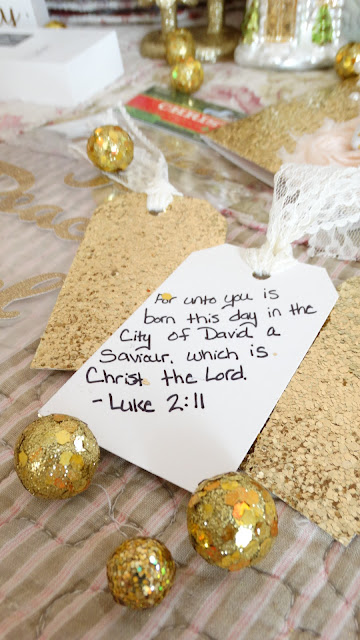 CHRIS
For unto you is
born this day in the
City of David a
Saviour, which is
Christ the Lord.
- Luke 2:11